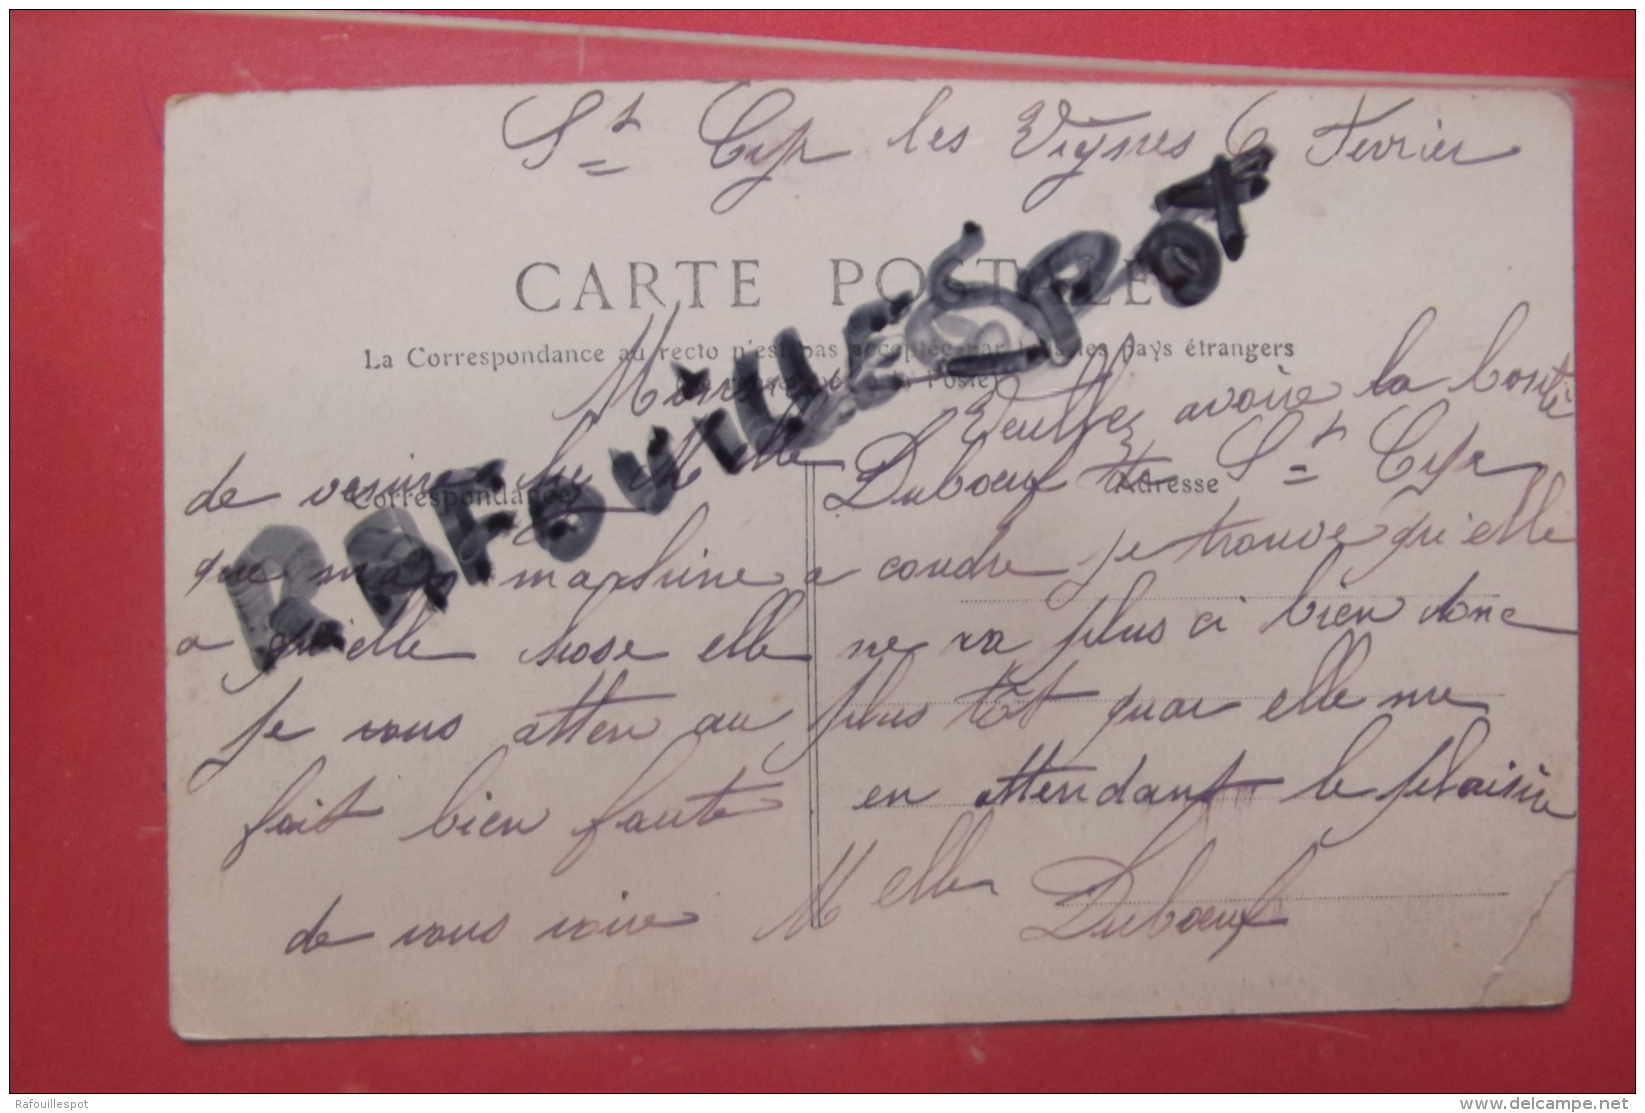 St Cyr les Vignes 6 Fevrier
CARTE POSTALE
La Correspondance au recto n'est pas acceptée par tous les pays étrangers
Poste)
RAFOUILLESPOT
Monsieur
Veuillez avoire la bonté
Correspondance
Adresse
de venire Melle Duboeuf St Cyr
que ma machine a coudre je trouve qu'elle
a qu'elle chose elle ne va plus ci bien donc
je vous atten au plus tôt quar elle me
fait bien faute en attendant le plaisire
de vous voire Melle Duboeuf
Rafouillespot
delcampe.net